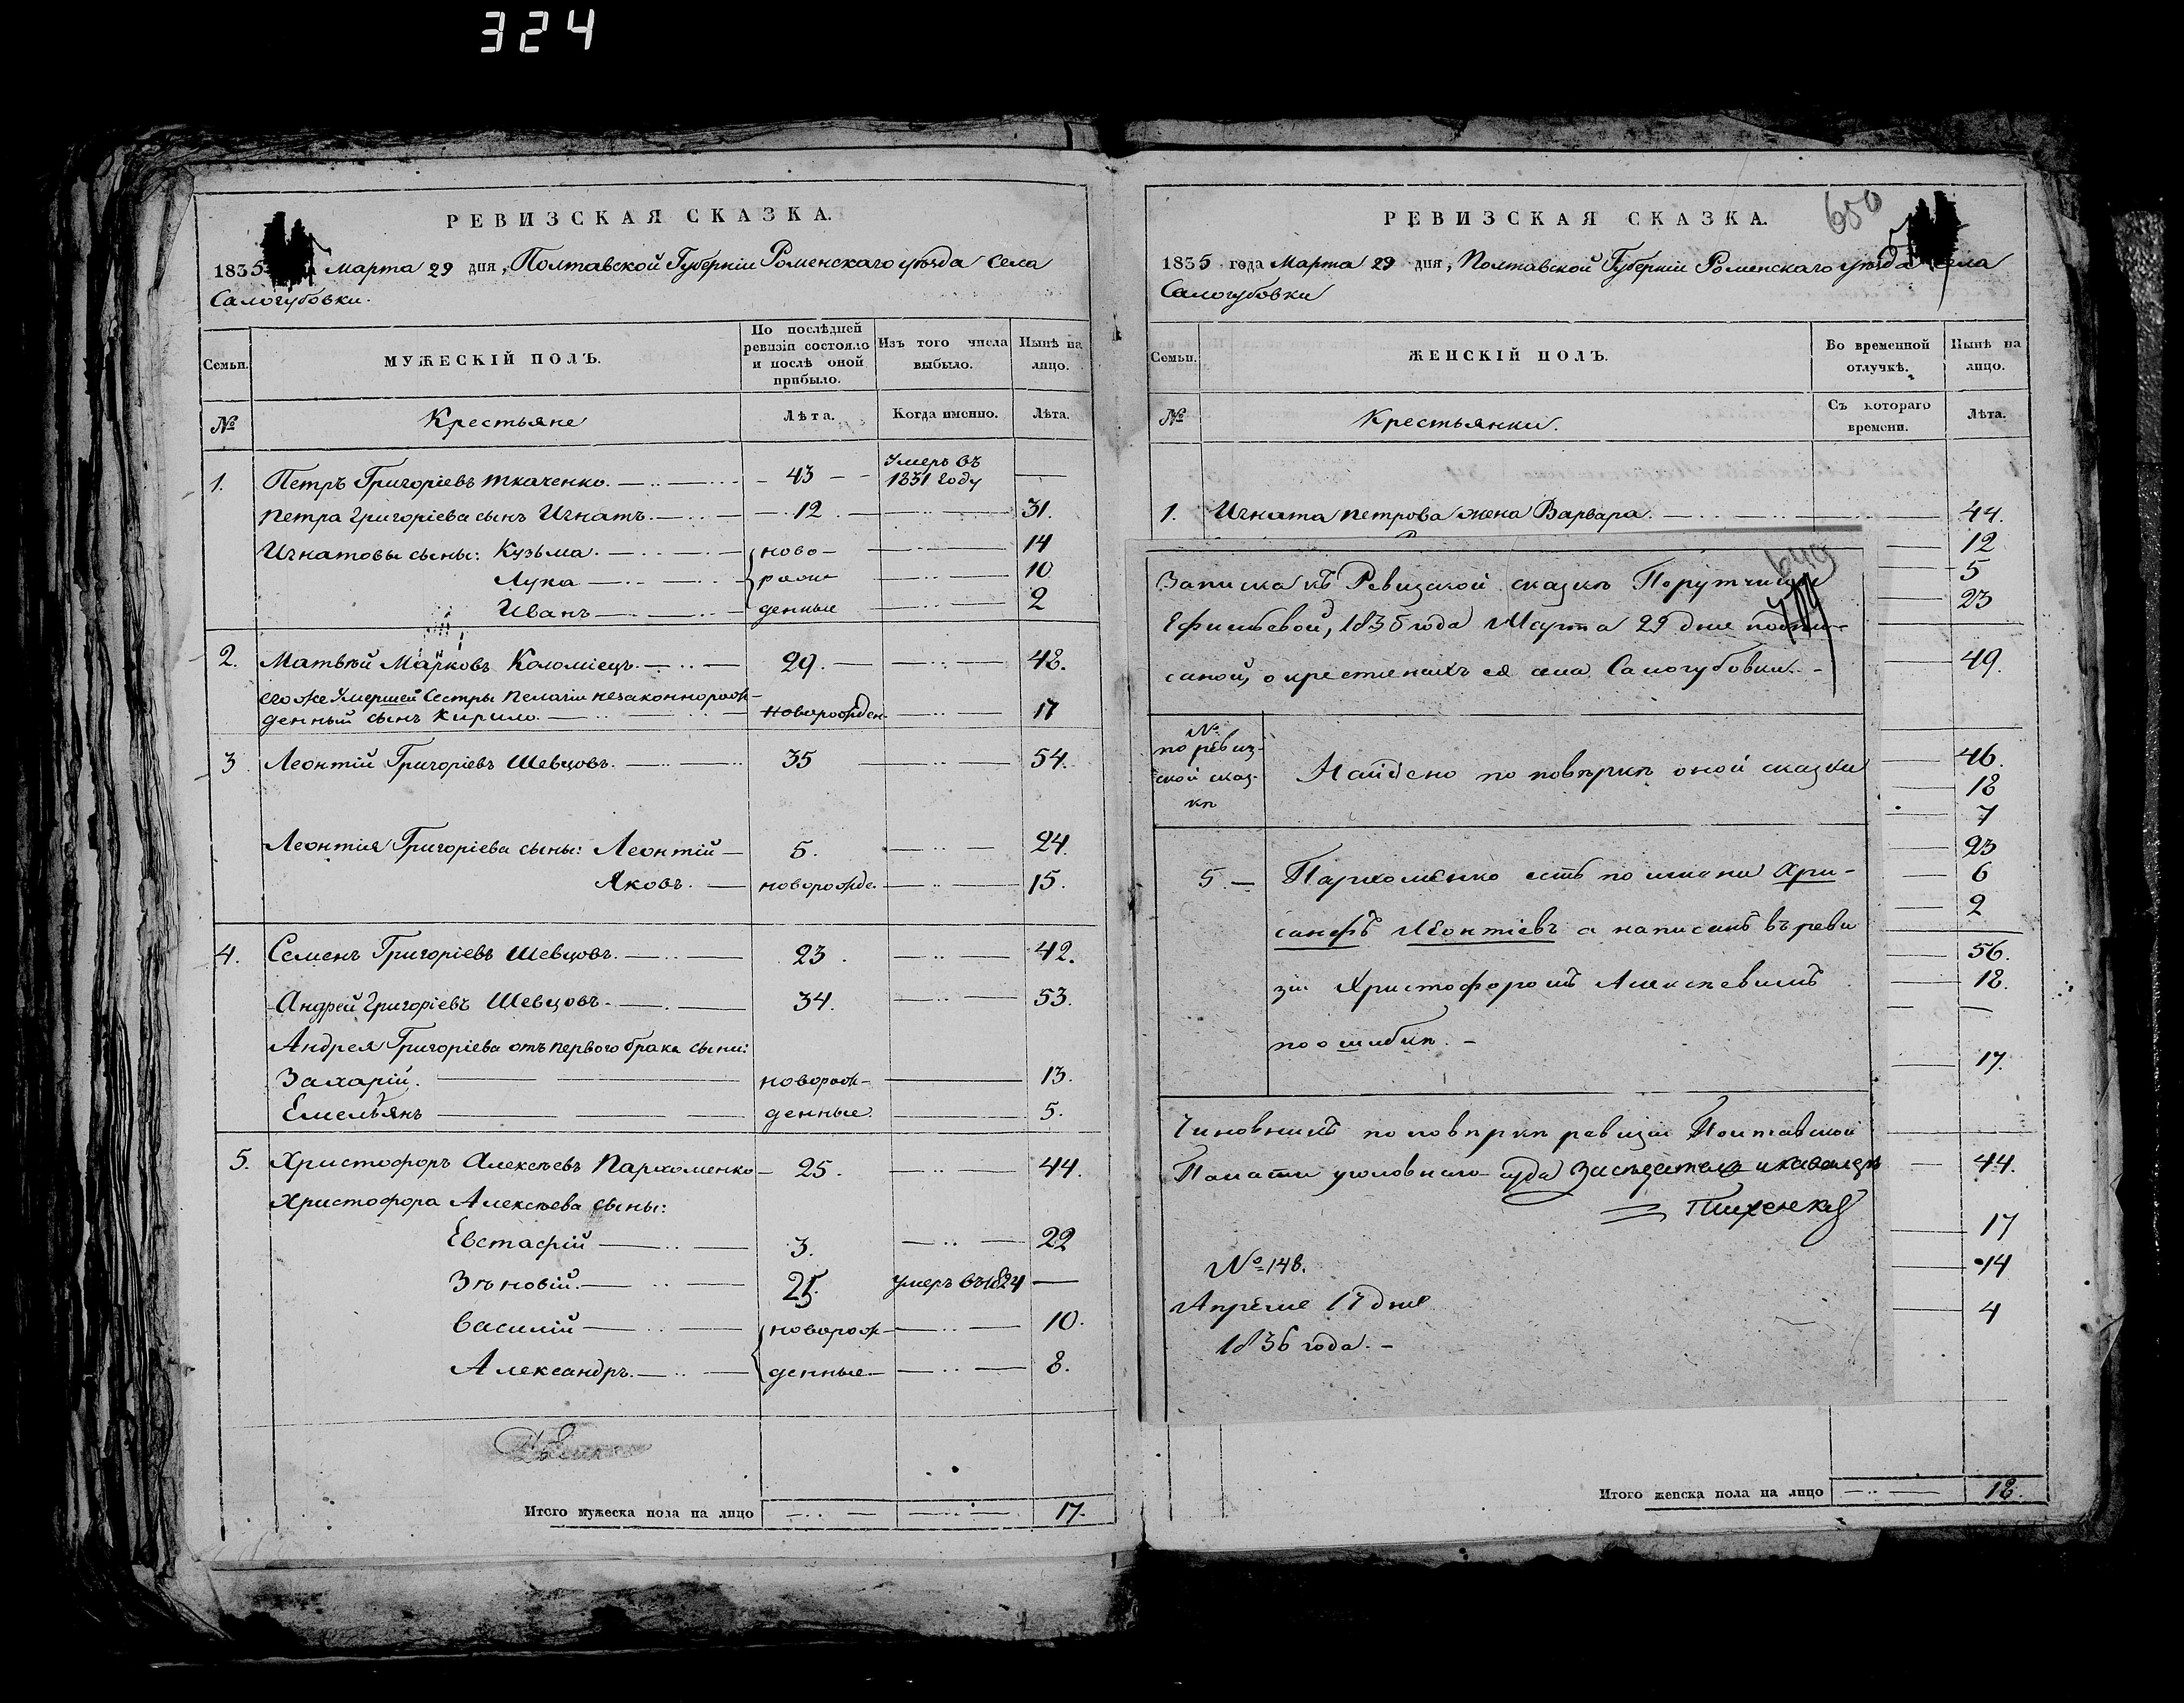 324
РЕВИЗСКАЯ СКАЗКА.
1835 Марта 29 дня, Полтавской Губерніи Роменскаго уѣзда Села
Салогубовки.
Семьи. МУЖЕСКІЙ ПОЛЪ. По послѣдней ревизіи состояло и послѣ оной прибыло. Изъ того числа выбыло. Нынѣ на лицо.
№ Крестьяне Лѣта. Когда именно. Лѣта.
1. Петръ Григоріевъ Ткаченко. 43 Умеръ въ 1831 году —
Петра Григоріева сынъ Игнатъ. 12 31.
Игнатовы сыны: Кузьма. ново- 14
Лука рож 10
Иванъ денные 2
2. Матвѣй Марковъ Коломіецъ. 29. 48.
его же Умершей Сестры Пелагіи незаконнорож-
денный сынъ Кирило. новорожден. 17
3 Леонтій Григоріевъ Шевцовъ. 35 54.
Леонтія Григоріева сыны: Леонтій 5. 24.
Яковъ. новорожде. 15.
4. Семенъ Григоріевъ Шевцовъ. 23. 42.
Андрей Григоріевъ Шевцовъ. 34. 53.
Андрея Григоріева отъ первого брака сыны:
Захарій. новорож- 13.
Емельянъ денные. 5.
5. Христофоръ Алексѣевъ Пархоменко 25. 44.
Христофора Алексѣева сыны:
Евстафій 3. 22
Зѣновій. Умеръ въ 1824 —
Василій новорож- 10.
Александръ. денные 8.
Итого мужеска пола на лицо 17.
650
РЕВИЗСКАЯ СКАЗКА.
1835 года Марта 29 дня, Полтавской Губерніи Роменскаго уѣзда Села
Салогубовки
Семьи. ЖЕНСКІЙ ПОЛЪ. Во временной отлучкѣ. Нынѣ на лицо.
№ Крестьянки. Съ котораго времени. Лѣта.
1. Игната Петрова жена Варвара. 44.
12
5
23
49.
46.
18
7
23
6
2
56.
18.
17.
44.
17
14
4
649
Записка къ Ревизской сказкѣ Порутчицы
Ефимьевой, 1835 года Марта 29 дня подпи-
саной, о крестьянахъ ея села Салогубовки. -
№ по ревиз-
ской сказ-
кѣ
Найдено по повѣркѣ оной сказки
5. — Пархоменко есть по имени Хри-
санфъ Леонтіевъ а написанъ въ реви
зіи Христофоромъ Алексѣевымъ
по ошибкѣ. -
Чиновникъ по повѣркѣ ревизіи Полтавской
Палаты уголовнаго суда Засѣдатель и кавалеръ
№ 148.
Апрѣля 17 дня
1836 года. -
Итого женска пола на лицо 18.